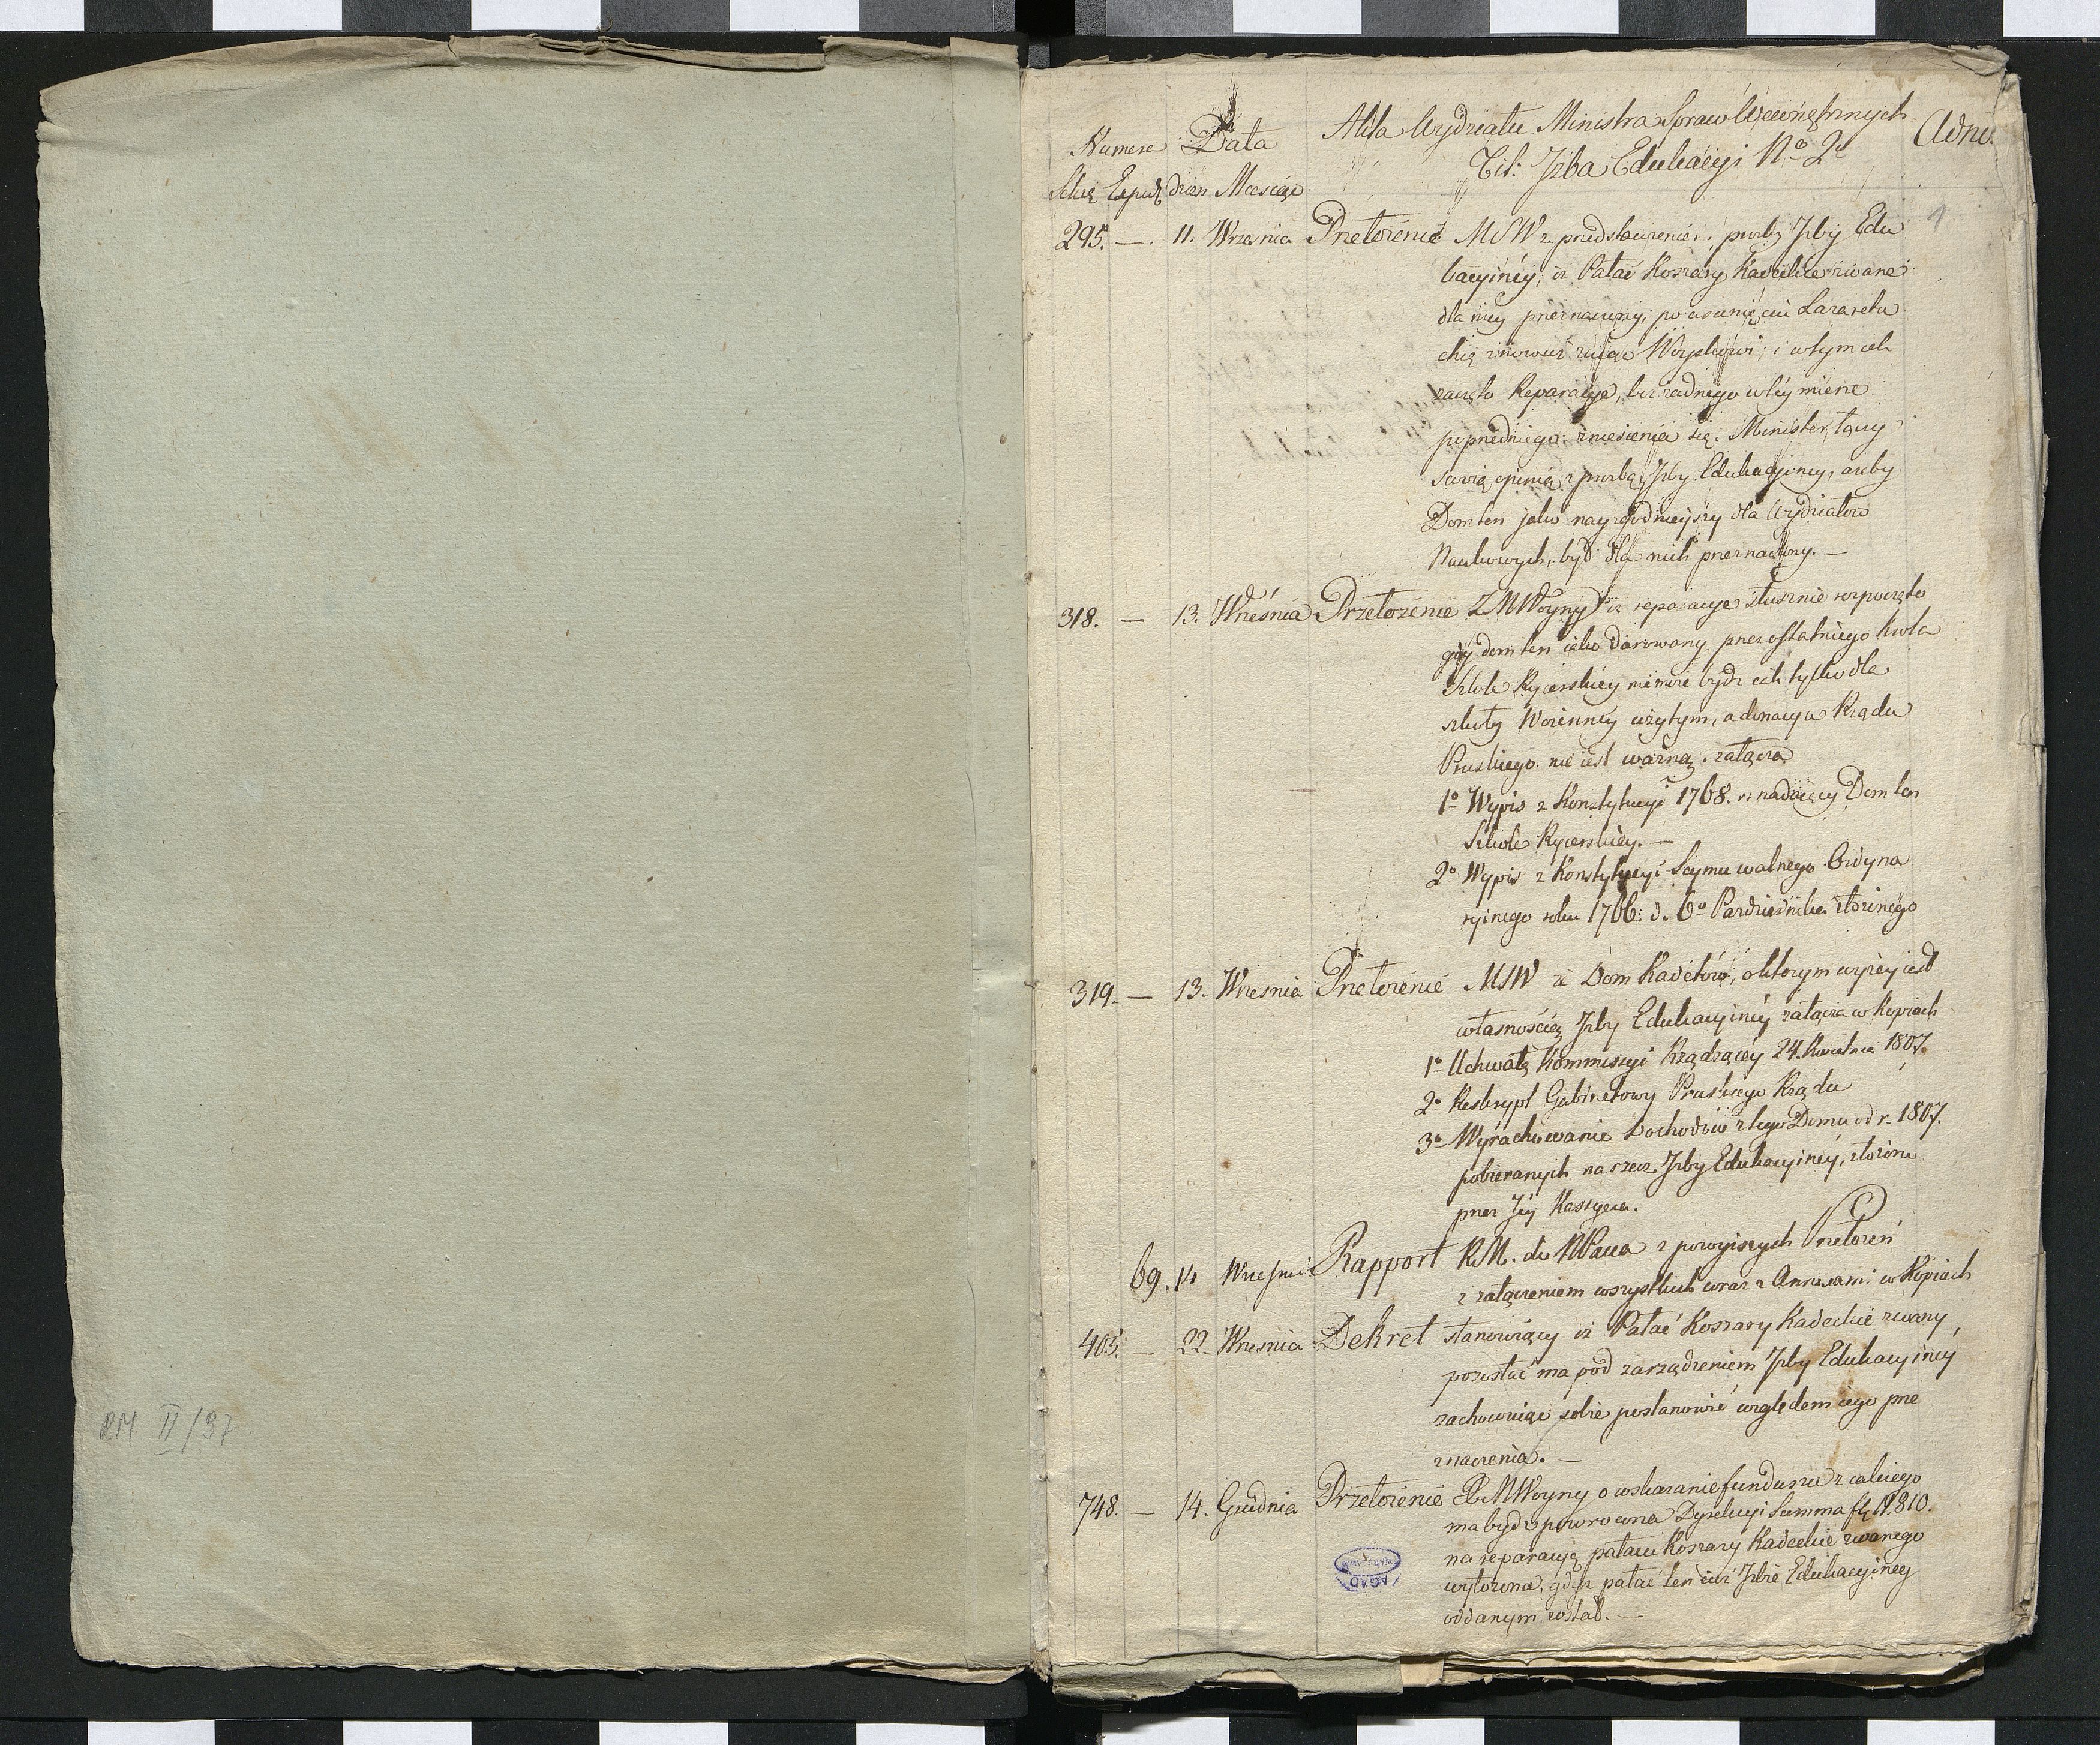 Akta Wydziału Ministra Spraw Wewnętrznych
Numera Data Tit: Izba Edukacyi No 2o Adno.
Exped. dzien Miesiąc
1
295. —. 11. Wrzesnia Przełożenie MSW z przedstawienie i prozby Izby Edu
kacyinéy, iż Pałac Koszary Kadeckie zwane
dla niey przeznaczony, po usunięciu Lazaretu
chcą znowuż zająć Woyskowi, i w tym celu
zaczęto Reparacye, bez żadnego w téy mierze
poprzedniego zniesienia się. Minister łączy
swoią opinią z prozbą Izby Edukacyiney, ażeby
Dom ten jako nayzgodnieyszy dla Wydziałów
Naukowych, był dla nich przeznaczony. —
318. — 13. Wrześnía Przełożenie Z MWoyny iż reparacye słusznie rozpoczęto
gdy dom ten iako darowany przez ostatniego Króla
Szkole Rycerskiéy nie może bydz iak tylko dla
służby Woienney użytym, a donacya Rządu
Pruskiego nie iest ważną, załącza
1o Wypis z Konstytucyi 1768. r. nadaiący Dom ten
Szkole Rycerskiéy. —
2o Wypis z Konstytucyi Seymu walnego Ordyna
ryinego roku 1766. d. 6o Pazdziernika złożonego
319. — 13. Wrzesnia Przełożenie MSW że Dom Kadetów, o którym wyżéy iest
własnością Izby Edukacyinéy załącza w Kopiach
1o Uchwałę Kommissyi Rządzącéy 24. Kwietnia 1807.
2o Reskrypt Gabinetowy Pruskiego Rządu
3o Wyrachowanie Dochodów z tego Domu od r. 1807.
pobieranych na rzecz Izby Edukacyinéy, złożone
przez Jéy Kassyera.
69. 14 Wrzesnia Rapport RM. do NPana z powyższych Przełożeń
z załączeniem wszystkich wraz z Annexami w Kopiach
405. — 22. Wrzesnia Dekret stanowiący iż Pałac Koszary Kadeckie zwany,
pozostać ma pod zarządzeniem Izby Edukacyinéy
zachowuiąc sobie postanowić względem iego prze
znaczenia. —
748. — 14. Grudnia Przełożenie MWoyny o wskazanie funduszu z iakiego
ma bydz powrocona Dyrekcyi Summa fl. 11.810.
na reparacyą pałacu Koszary Kadeckie zwanego
wyłożona, gdyż pałac ten iuż Izbie Edukacyiney
oddanym został. —
AGAD
WARSZAWA
RM II/97